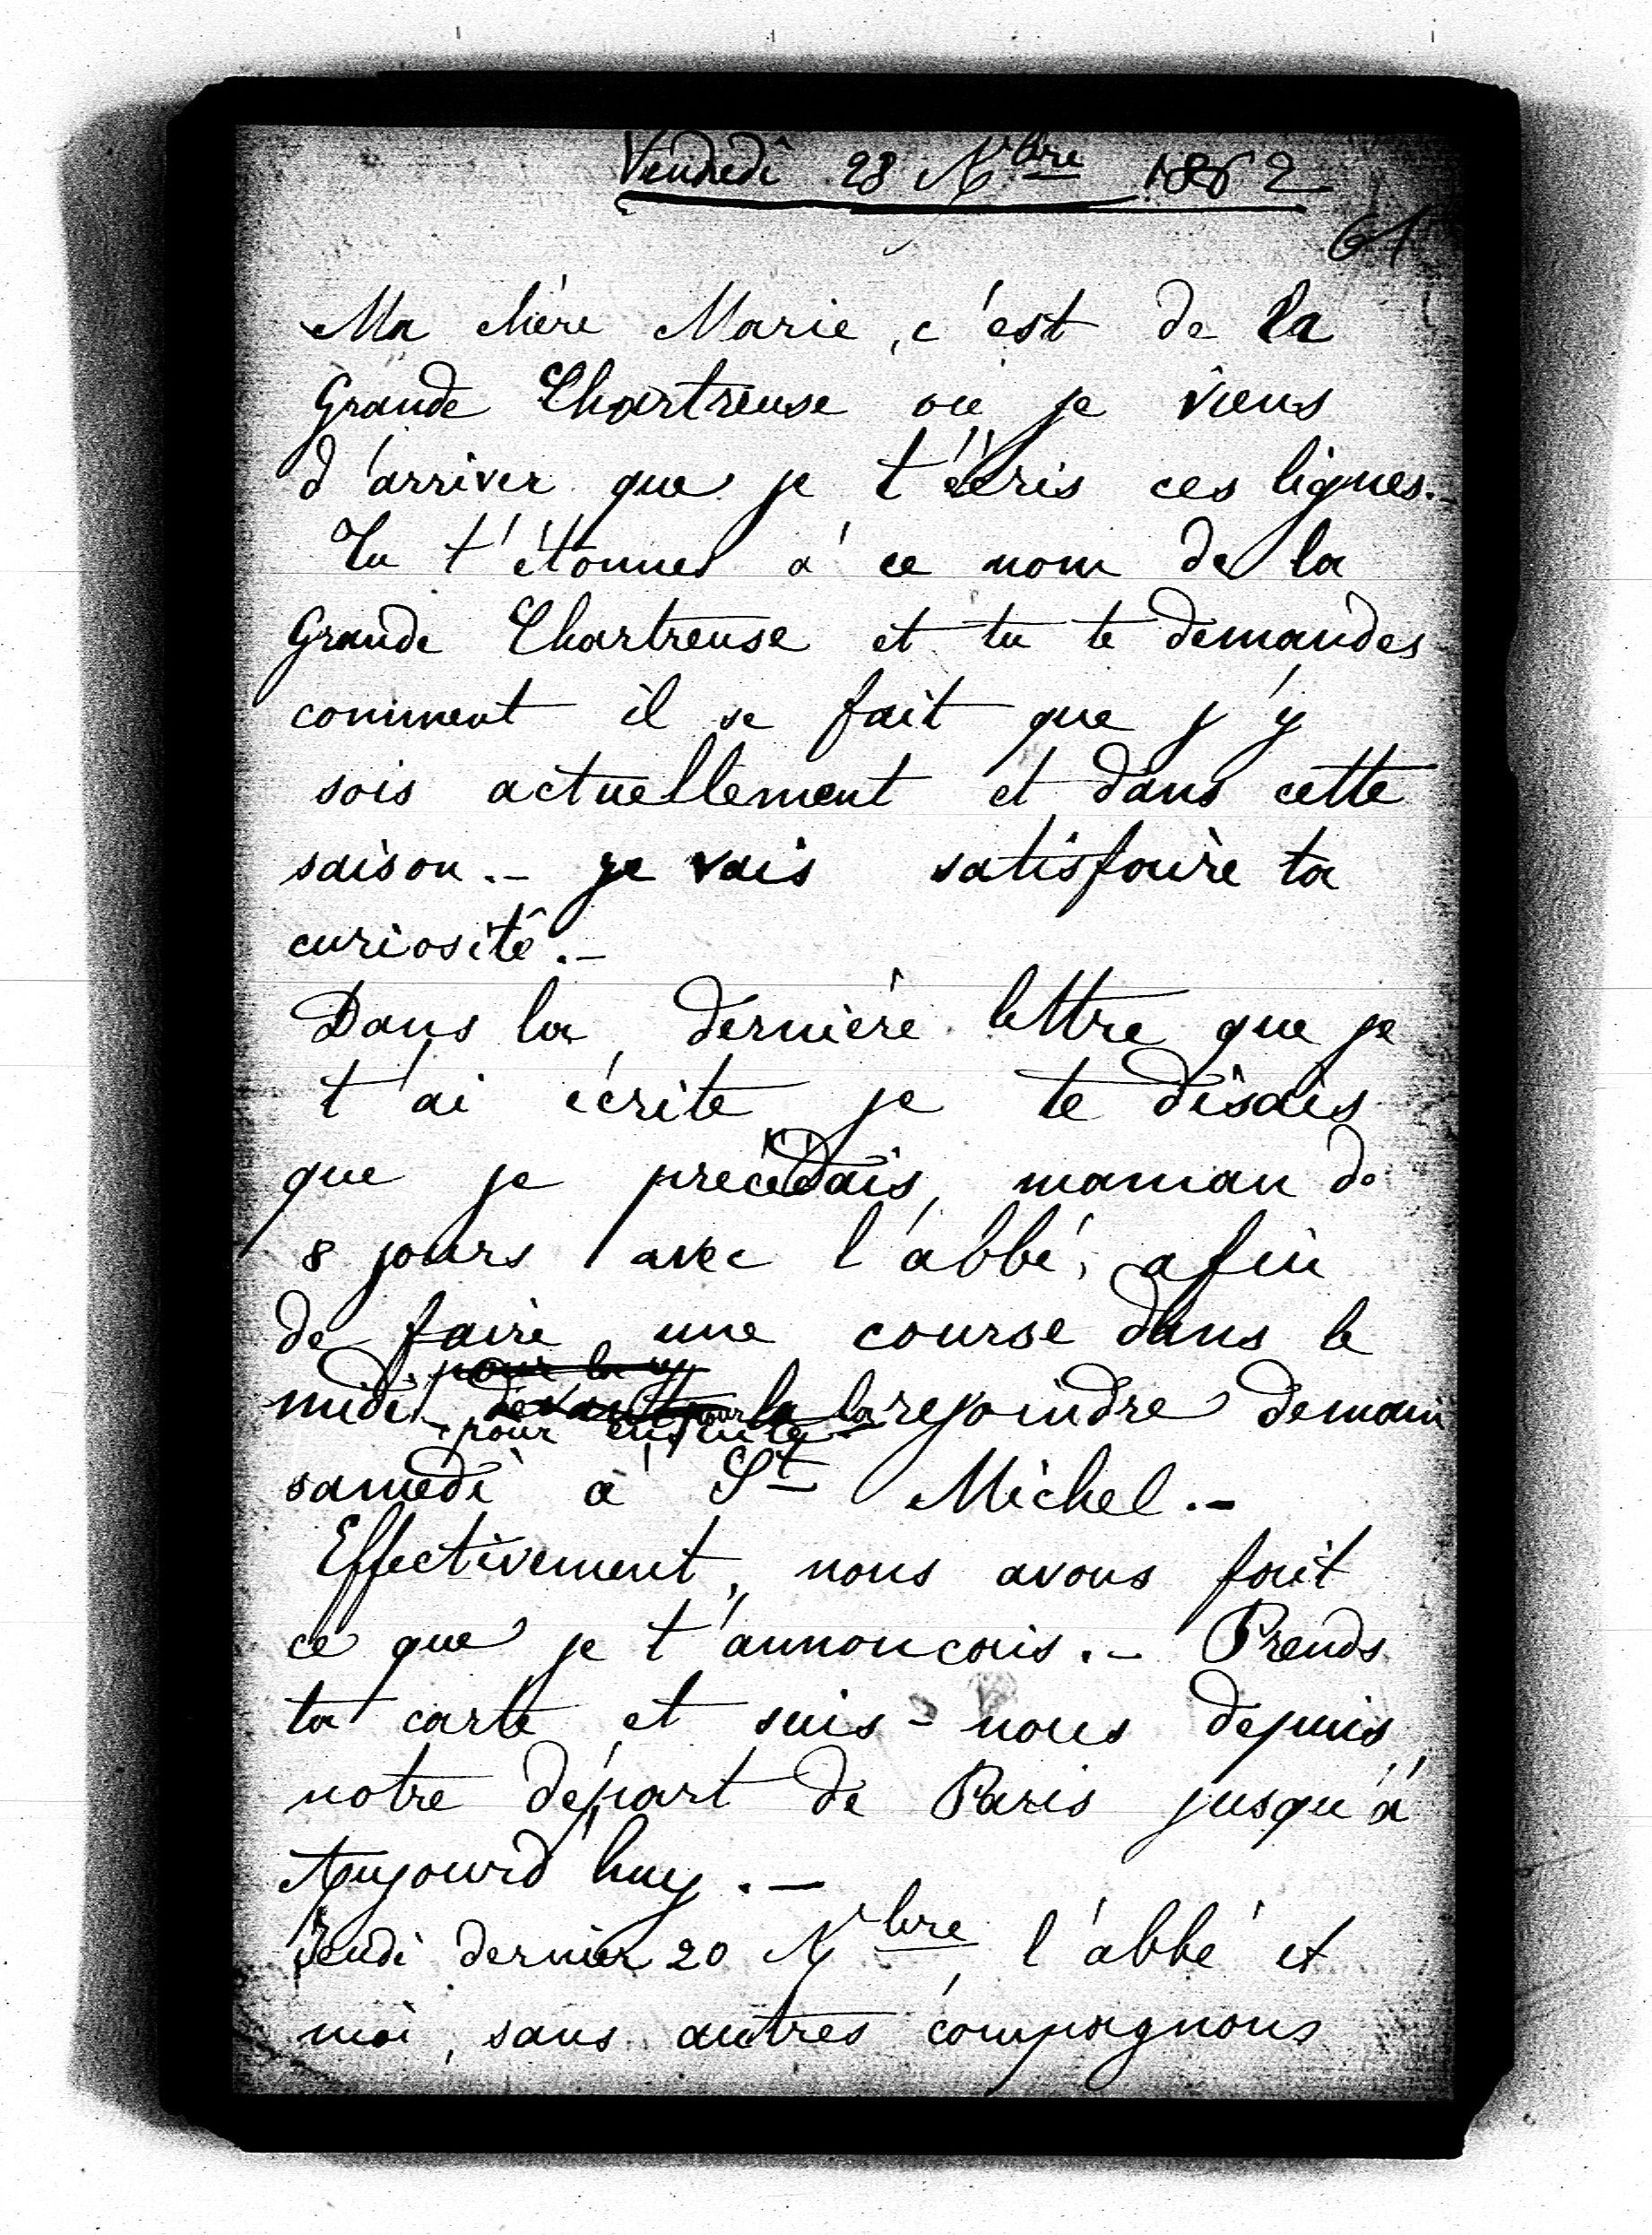 Vendredi 28 Nbre 1862
61
Ma chère Marie, c'est de la
Grande Chartreuse où je viens
d'arriver que je t'écris ces lignes.-
Tu t'étonnes à ce nom de la
Grande Chartreuse et tu te demandes
comment il se fait que j'y
sois actuellement et dans cette
saison.- je vais satisfaire ta
curiosité.-
Dans la dernière lettre que je
t'ai écrite je te disais
que je précédais, maman de
8 jours avec l'abbé, afin
de faire une course dans le
pour la
midi devant pour la la rejoindre demain
pour ensuite
samedi à St Michel.-
Effectivement, nous avons fait
ce que je t'annoncais.- Prends
ta carte et suis-nous depuis
notre départ de Paris jusqu'à
Aujourd'huy.-
Jeudi dernier 20 Nbre, l'abbé et
moi, sans autres compagnons